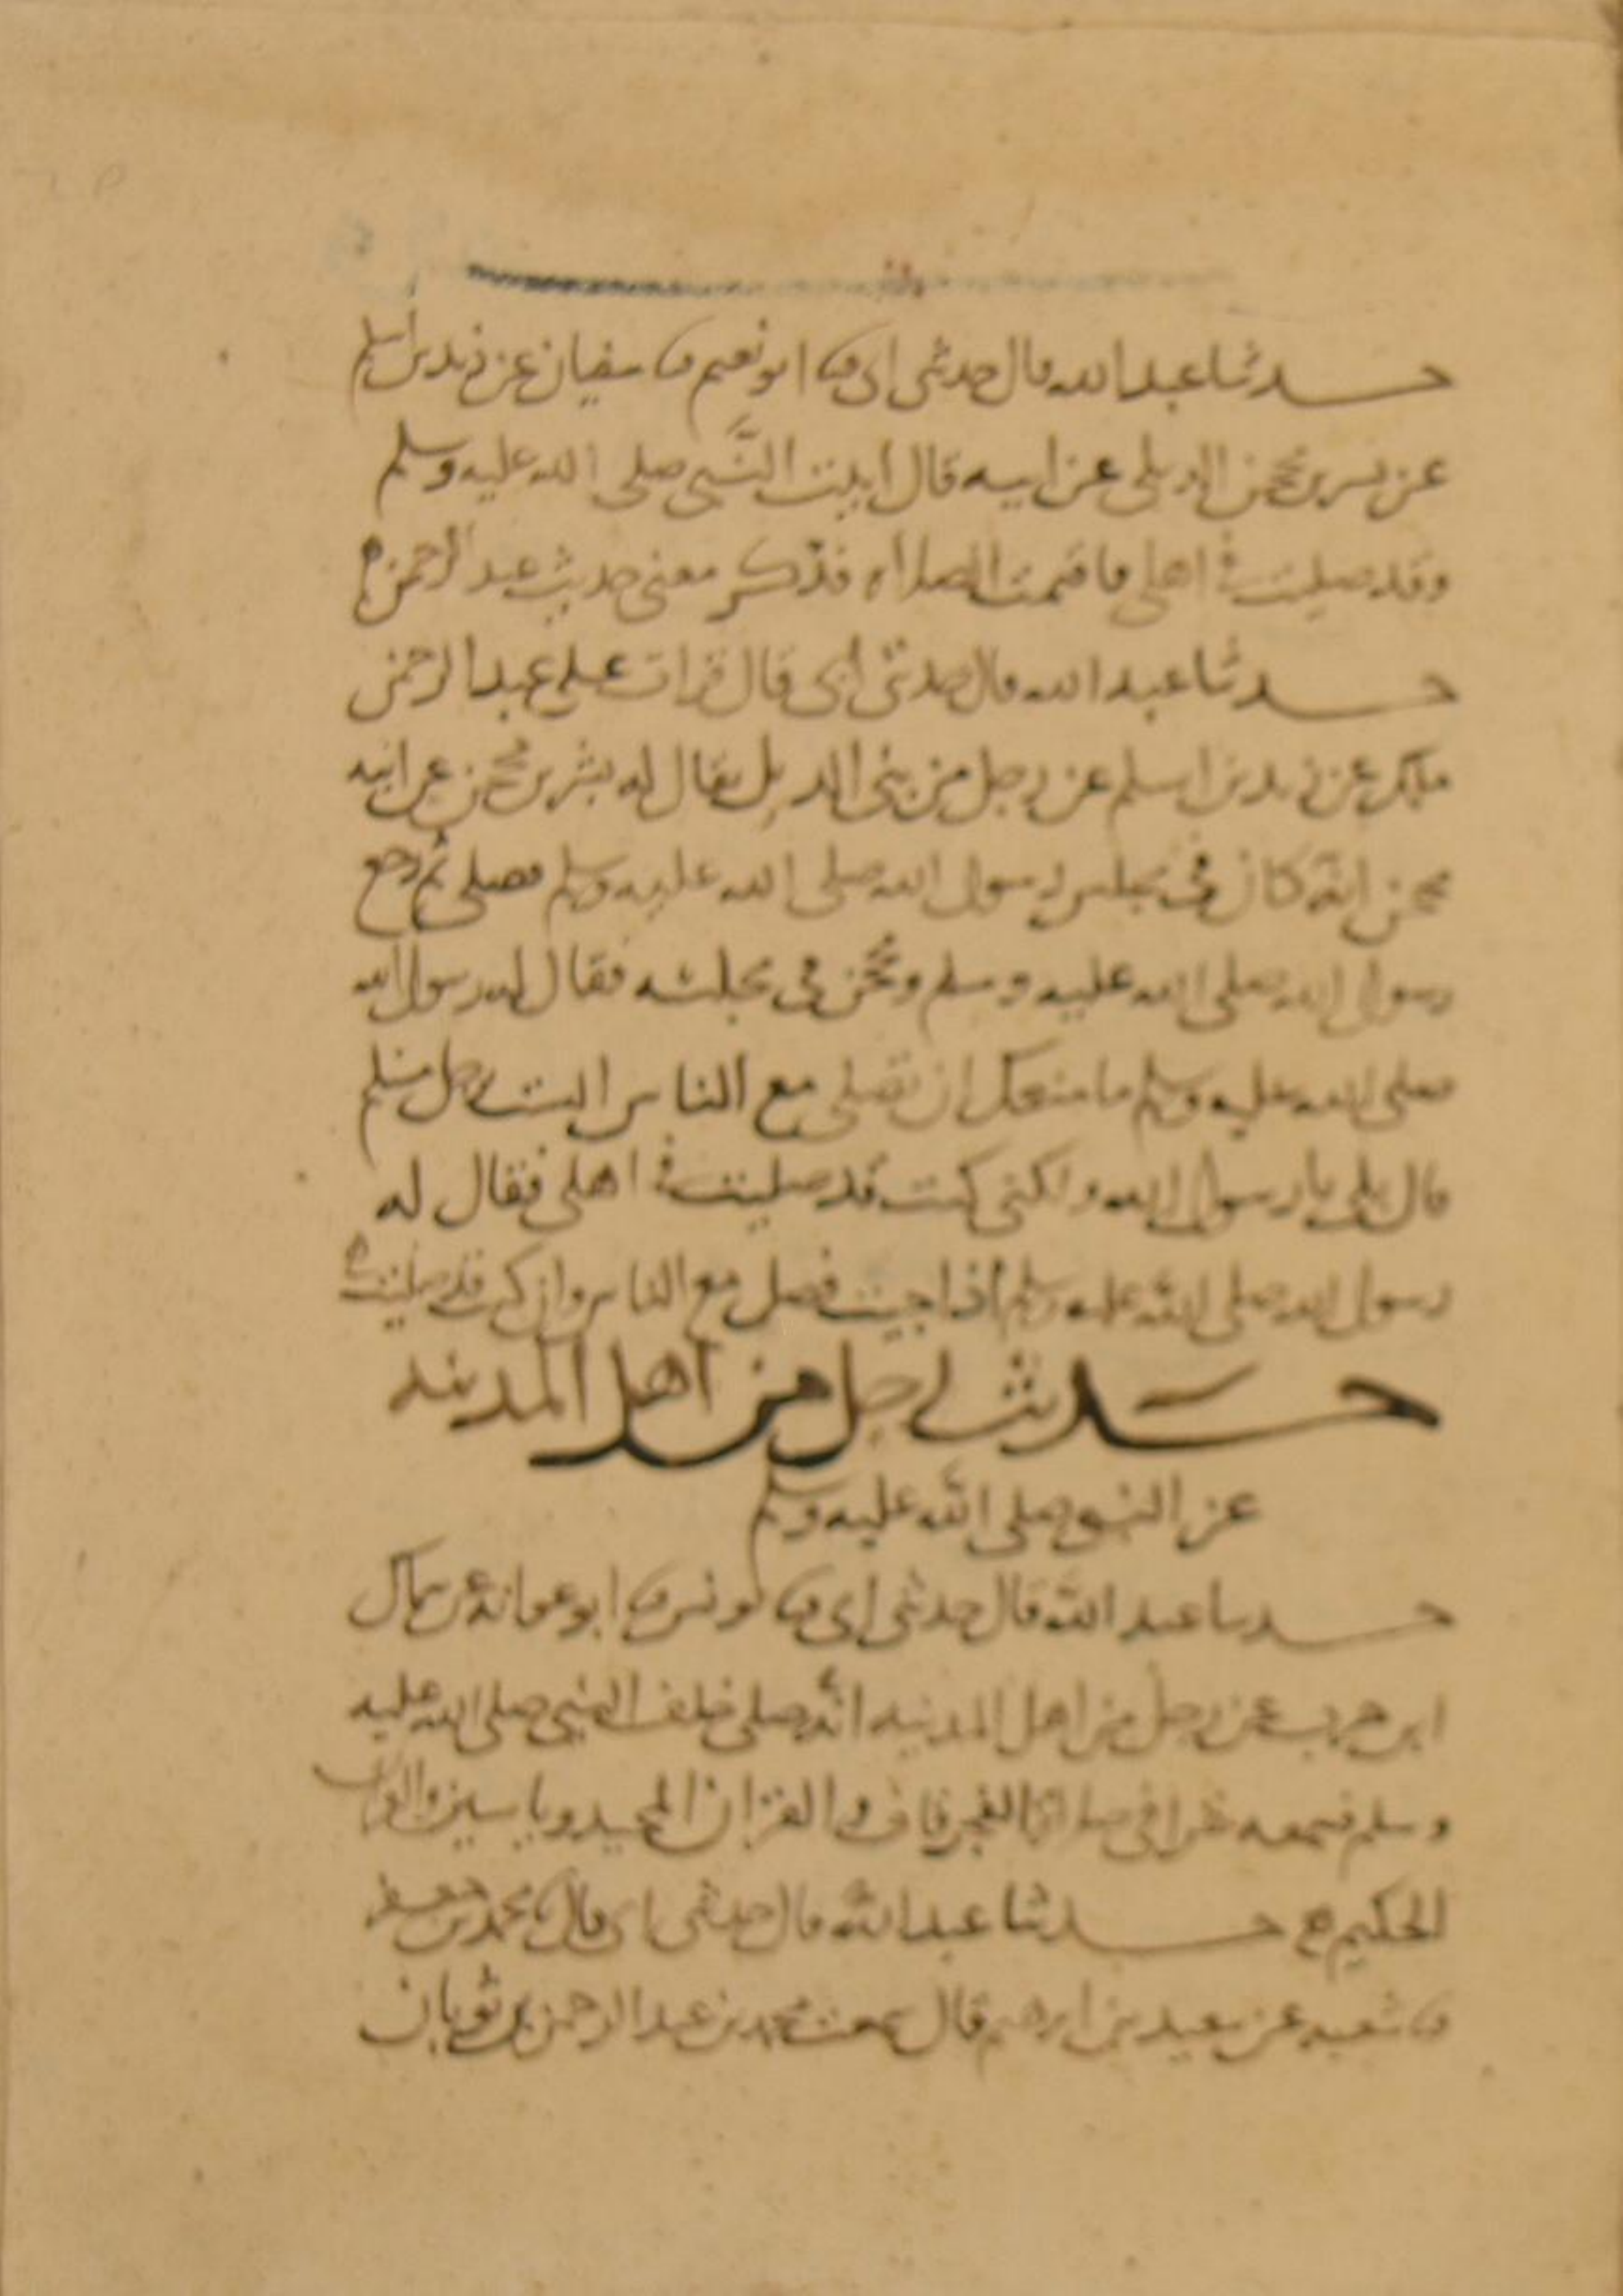 حدثنا عبد الله قال حدثنى ابى ثنا ابو نعيم ثنا سفيان عن زيد بن اسلم
عن بسر بن محجن الديلى عن ابيه قال اتيت النَّبى صلى الله عليه وسلم
وقد صليت فى اهلى فاقيمت الصلاة فذكر معنى حديث عبد الرحمن
حدثنا عبد الله قال حدثنى أبى قال قرات على عبد الرحمن
ملك عن زيد بن اسلم عن رجل من بنى الديل يقال له بشر بن محجن عن ابيه
محجن انه كان فى مجلس رسول الله صلى الله عليه وسلم فصلى ثم رجع
رسول الله صلى الله عليه وسلم ومحجن فى مجلسه فقال له رسول الله
صلى الله عليه وسلم ما منعك ان تصلى مع الناس الست برجل مسلم
قال بلى يا رسول الله ولكنى كنت قد صليت فى اهلى فقال له
رسول الله صلى الله عليه وسلم اذا جيت فصل مع الناس وان كنت قد صليت
حديث رجل من اهل المدينه
عن النبى صلى الله عليه وسلم
حدثنا عبد الله قال حدثنى ابى ثنا يونس ثنا ابو عوانه عن سماك
ابن حرب عن رجل من اهل المدينه انه صلى خلف النبى صلى الله عليه
وسلم فسمعه يقرا فى صلاة الفجر قاف والقران المجيد وياسين والقران
الحكيم حدثنا عبد الله قال حدثنى ابى قال ثنا محمد بن جعفر
ثنا شعبه عن سعيد بن ابرهيم قال سمعت محمد بن عبد الرحمن بن ثوبان